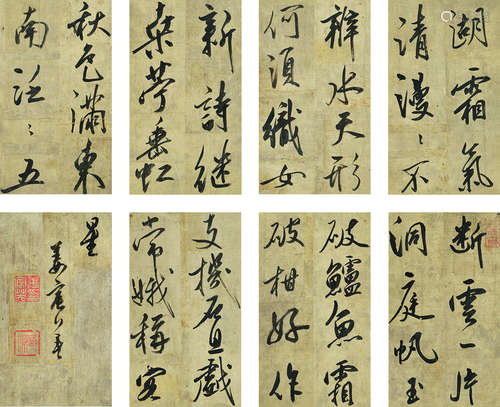 湖霜氣
清漫〻不
辨水天形
何須織女
新詩継
桑苧垂虹
秋色滿東
南泛〻五
断雲一片
洞庭帆玉
破鱸魚霜
破柑好作
支機石且戲
常娥稱客
星
姜宸英